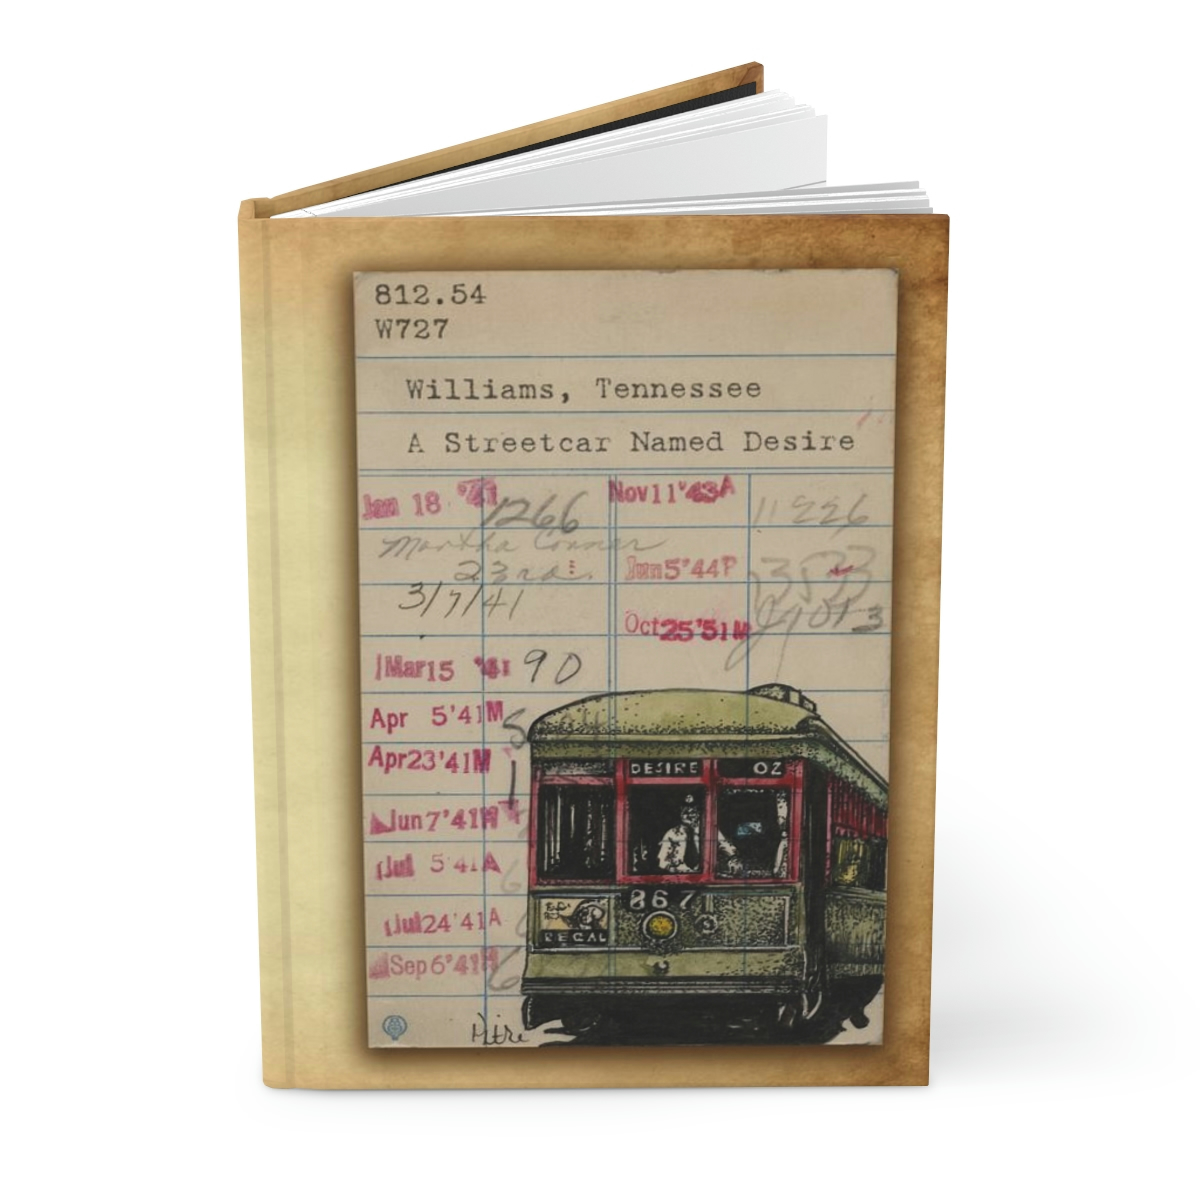 812.54
W727
Williams, Tennessee
A Streetcar Named Desire
Jan 18 '41 1266
Martha Conner
23rd.
3/7/41
Mar15 '41 90
Apr 5'41M
Apr23'41M
Jun7'41M
Jul 5'41A
Jul24'41A
Sep6'41
Nov11'43A 11226
Jun5'44P
Oct25'51M
DESIRE 02
867
REGAL
Pitre